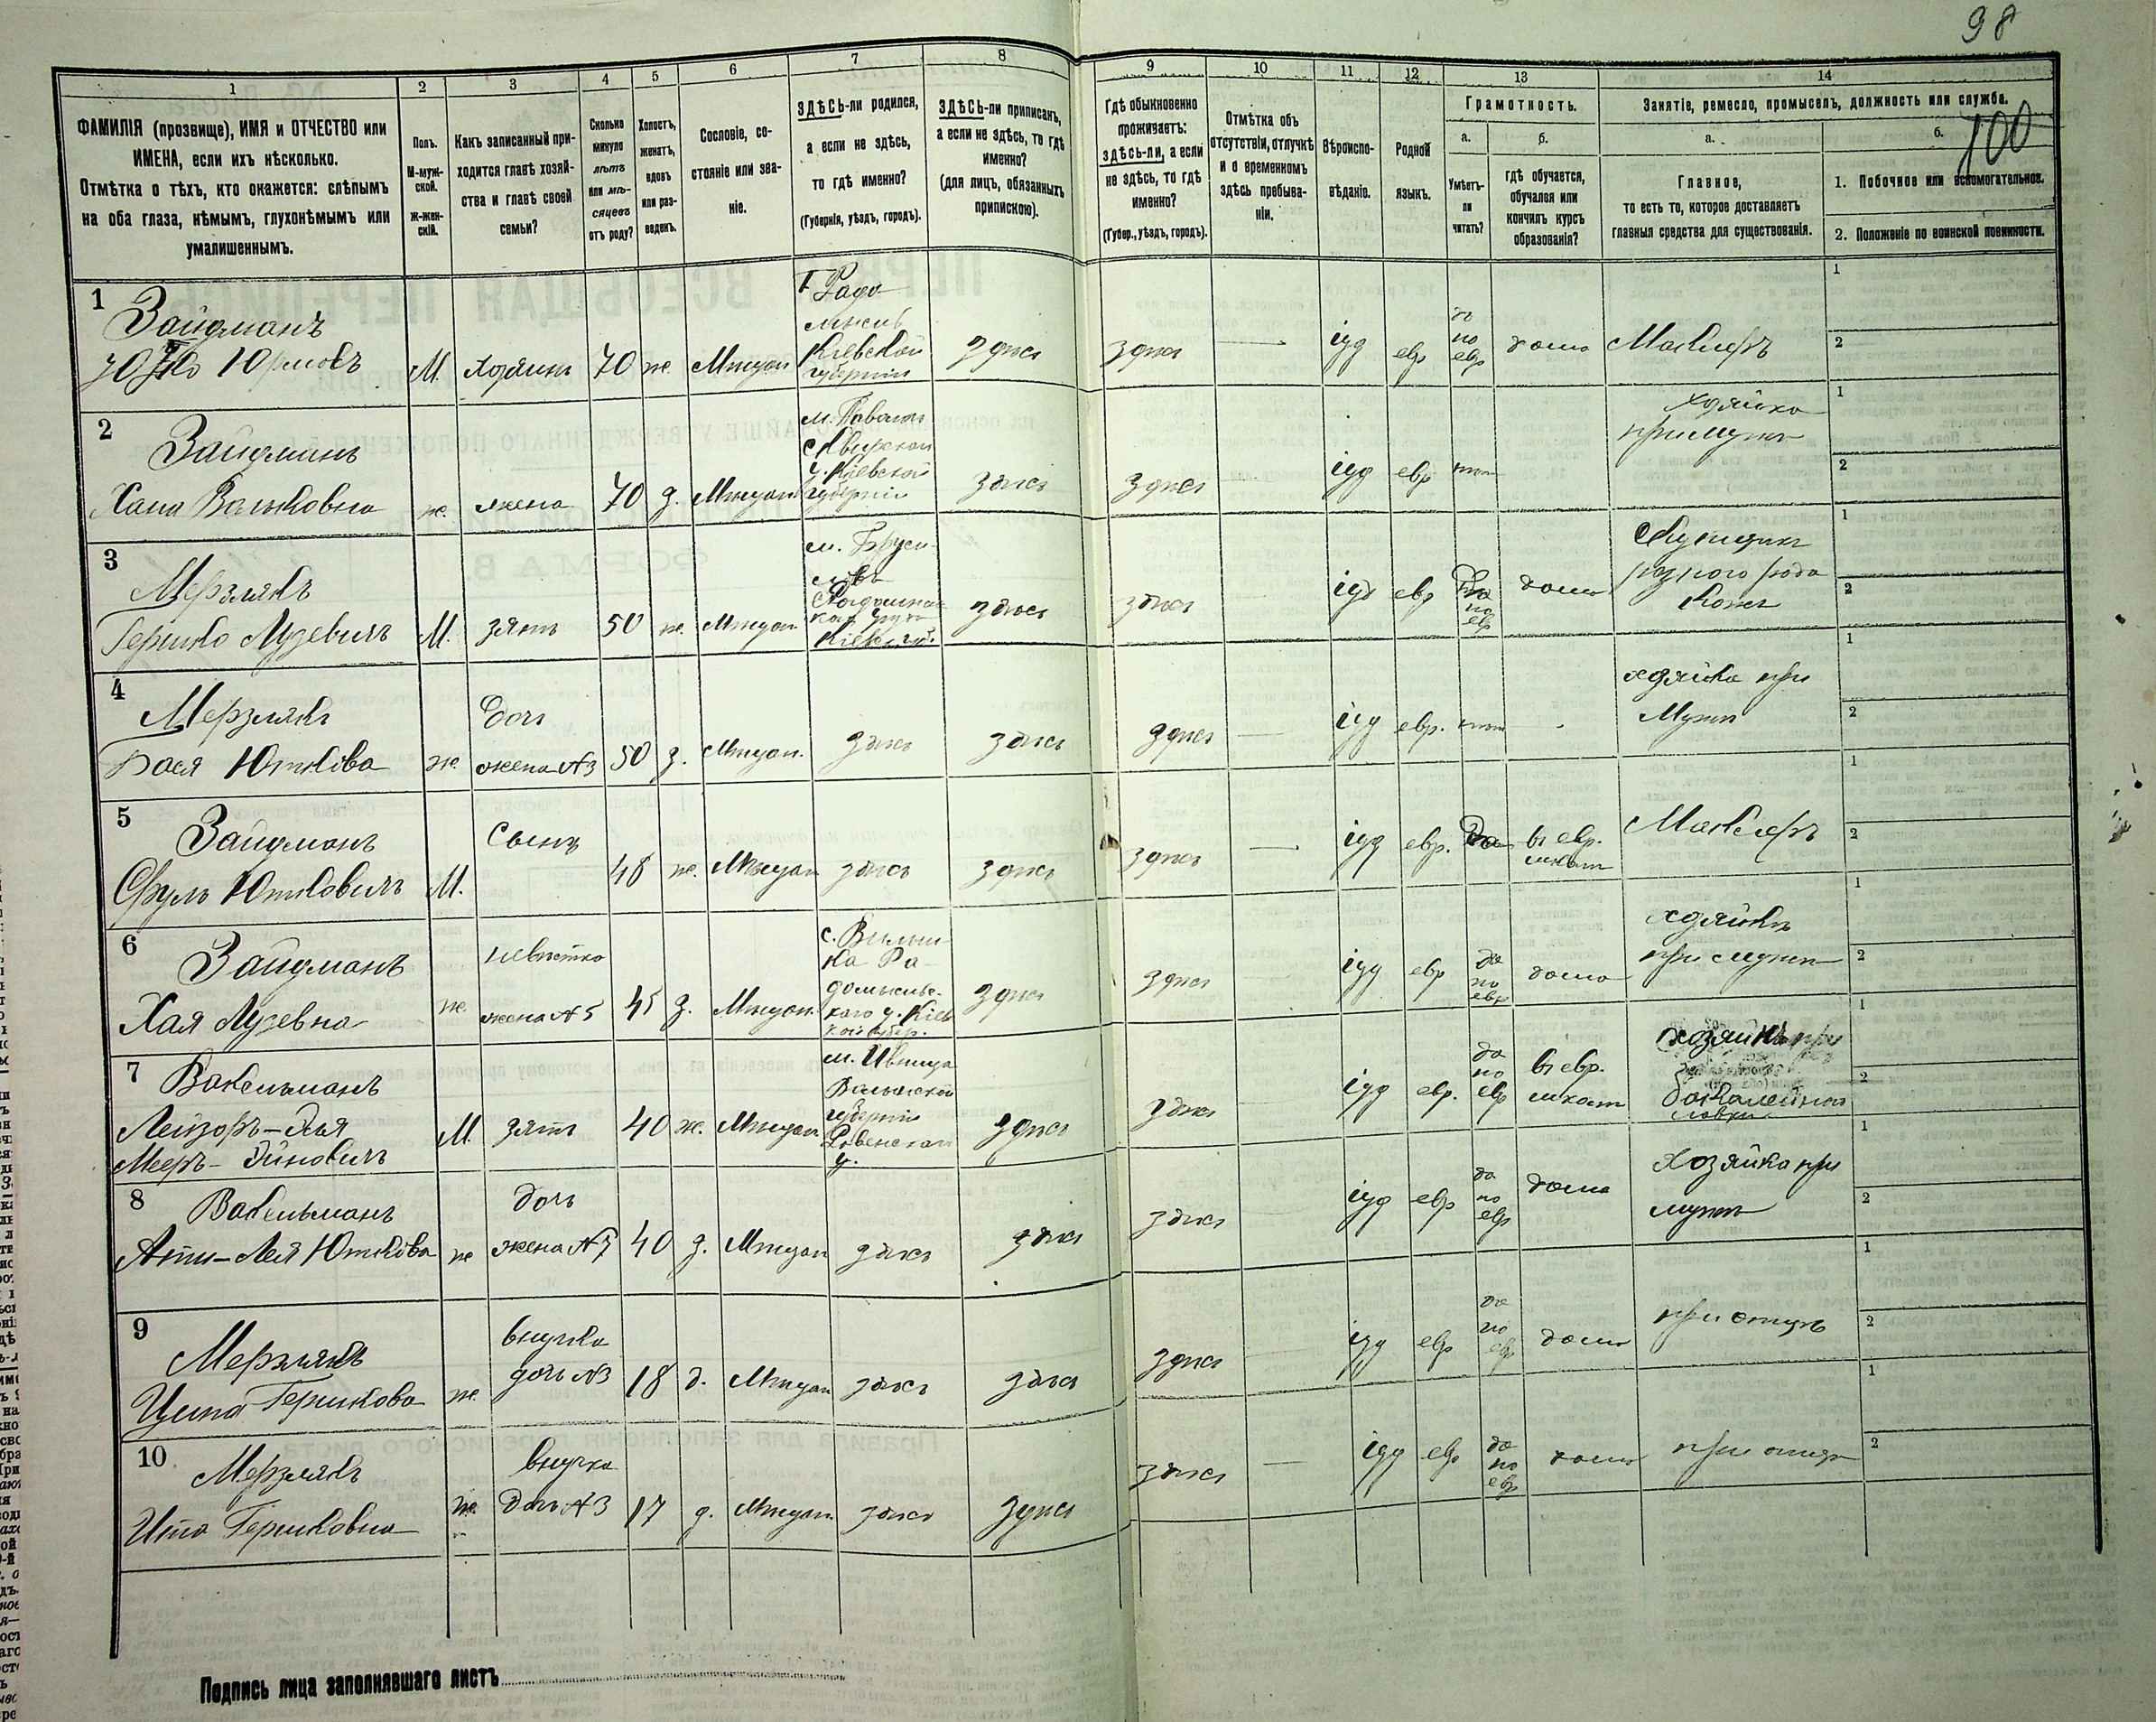 98
100
1
2
3
4
5
6
7
8
9
10
11
12
13
14
ФАМИЛІЯ (прозвище), ИМЯ и ОТЧЕСТВО или
ИМЕНА, если ихъ нѣсколько.
Отмѣтка о тѣхъ, кто окажется: слѣпымъ
на оба глаза, нѣмымъ, глухонѣмымъ или
умалишеннымъ.
Полъ.
М-муж-
ской.
Ж-жен-
скій.
Какъ записанный при-
ходится главѣ хозяй-
ства и главѣ своей
семьи?
Сколько
минуло
лѣтъ
или мѣ-
сяцевъ
отъ роду?
Холостъ,
женатъ,
вдовъ
или раз-
веденъ.
Сословіе, со-
стояніе или зва-
ніе.
ЗДѢСЬ-ли родился,
а если не здѣсь,
то гдѣ именно?
(Губернія, уѣздъ, городъ).
ЗДѢСЬ-ли приписанъ,
а если не здѣсь, то гдѣ
именно?
(для лицъ, обязанныхъ
припискою).
Гдѣ обыкновенно
проживаетъ:
ЗДѢСЬ-ли, а если
не здѣсь, то гдѣ
именно?
(Губер., уѣздъ, городъ).
Отмѣтка объ
отсутствіи, отлучкѣ
и о временномъ
здѣсь пребыва-
ніи.
Вѣроиспо-
вѣданіе.
Родной
языкъ.
Грамотность.
а.
б.
Умѣетъ-
ли
читать?
гдѣ обучается,
обучался или
кончилъ курсъ
образованія?
Занятіе, ремесло, промыселъ, должность или служба.
а.
б.
Главное,
то есть то, которое доставляетъ
главныя средства для существованія.
1. Побочное или вспомогательное.
2. Положеніе по воинской повинности.
1
Зайдманъ
М. хозяинъ 70 ж. Мѣщан
Кіевской
губерніи
здѣсь здѣсь іуд евр
да
по
евр
дома Маклеръ
1
2
2
Зайдманъ
Хана Вольковна ж. жена 70 з. Мѣщан
у. Кіевской
губерніи
здѣсь здѣсь іуд евр нѣт
хозяйка
при мужѣ
1
2
3
Мерзлякъ
Гершко Лузевичъ М. зять 50 ж. Мѣщан
м. Бруси-
ловъ
здѣсь здѣсь іуд евр
да
по
евр
дома
разного рода
кожъ
1
2
4
Мерзлякъ
Бася Юткова ж.
дочь
жена №3 50 з. Мѣщан. здѣсь здѣсь здѣсь іуд евр. нѣт
хозяйка при
мужѣ
1
2
5
Зайдманъ
Сруль Ютковичъ М. сынъ 48 ж. Мѣщан здѣсь здѣсь здѣсь іуд евр. да
въ евр.
школѣ
Маклеръ
1
2
6
Зайдманъ
Хая Лузевна ж.
невѣстка
жена №5 45 з. Мѣщан.
здѣсь здѣсь іуд евр
да
по
евр
дома
хозяйка
при мужѣ
1
2
7
Вакельманъ
Лейзоръ-
Мееръ- М. зять 40 ж. Мѣщан
м. Ивница
Волынской
губерніи
у.
здѣсь здѣсь іуд евр.
да
по
евр
въ евр.
школѣ
бакалейной
лавки
1
2
8
Вакельманъ
Лея Юткова ж
дочь
жена №7 40 з. Мѣщан здѣсь здѣсь здѣсь іуд евр
да
по
евр
дома
Хозяйка при
мужѣ
1
2
9
Мерзлякъ
Гершкова ж.
внучка
дочь №3 18 д. Мѣщан здѣсь здѣсь здѣсь іуд евр
да
по
евр
дома при отцѣ
1
2
10
Мерзлякъ
Ита Гершковна ж.
внучка
дочь №3 17 д. Мѣщан здѣсь здѣсь здѣсь іуд евр
да
по
евр
дома при отцѣ
1
2
Подпись лица заполнявшаго листъ